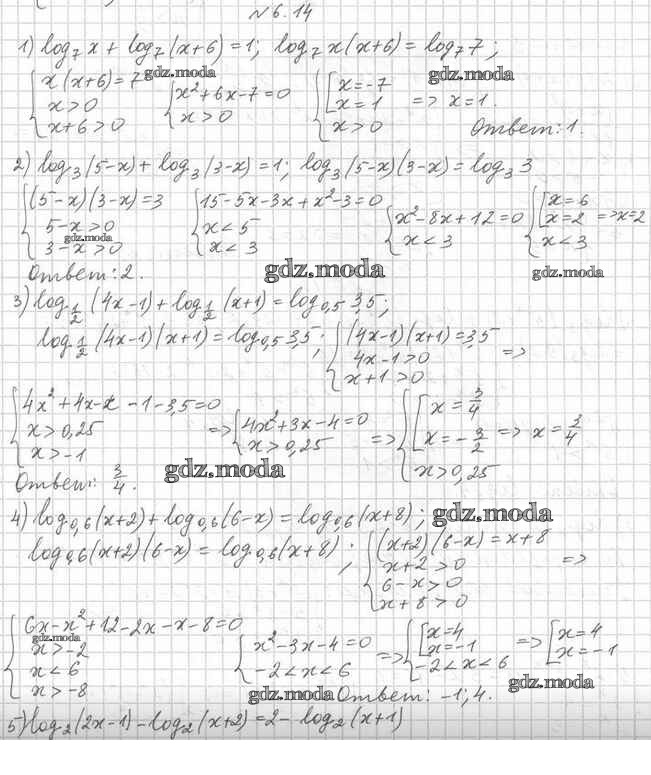 № 6.14
1) log₇ x + log₇ (x+6) = 1; log₇ x(x+6) = log₇ 7;
{ x(x+6) = 7 { x²+6x-7=0 { [ x=-7
x>0 x>0 x=1 => x=1.
x+6>0 x>0 Ответ: 1.
gdz.moda gdz.moda
2) log₃ (5-x) + log₃ (3-x) = 1; log₃ (5-x)(3-x) = log₃ 3
{ (5-x)(3-x)=3 { 15-5x-3x+x²-3=0 { x²-8x+12=0 { [ x=6
5-x>0 x<5 x<3 x=2 => x=2
3-x>0 x<3 x<3
gdz.moda gdz.moda gdz.moda
Ответ: 2.
3) log½ (4x-1) + log½ (x+1) = log₀,₅ 3,5;
log½ (4x-1)(x+1) = log₀,₅ 3,5; { (4x-1)(x+1)=3,5
4x-1>0 =>
x+1>0
{ 4x²+4x-x-1-3,5=0 => { 4x²+3x-4=0 => { [ x=3/4
x>0,25 x>0,25 x=-3/2 => x=3/4
x>-1 x>0,25
Ответ: 3/4. gdz.moda
4) log₀,₆ (x+2) + log₀,₆ (6-x) = log₀,₆ (x+8); gdz.moda
log₀,₆ (x+2)(6-x) = log₀,₆ (x+8); { (x+2)(6-x)=x+8
x+2>0 =>
6-x>0
x+8>0
{ 6x-x²+12-2x-x-8=0 { x²-3x-4=0 => { [ x=4 => [ x=4
gdz.moda
x>-2 -2<x<6 x=-1 x=-1
x<6 -2<x<6
x>-8 gdz.moda Ответ: -1; 4. gdz.moda
5) log₂ (2x-1) - log₂ (x+2) = 2 - log₂ (x+1)